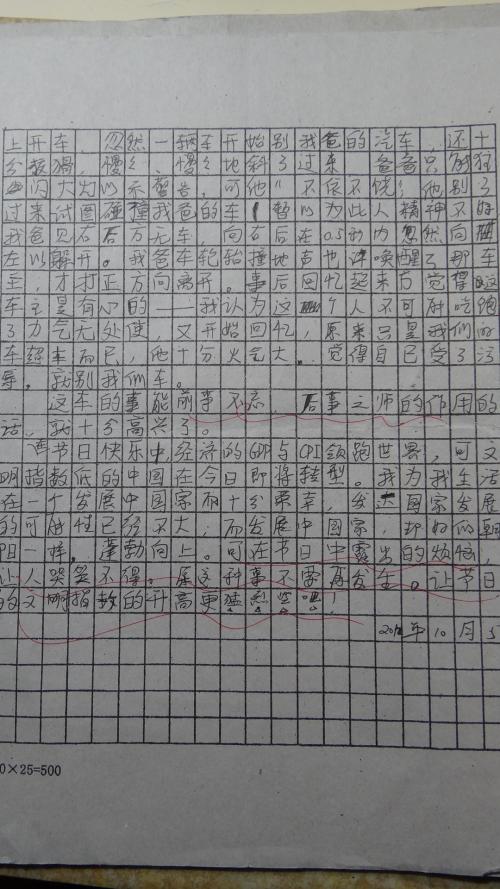 上开车，忽然一辆车开始别我爸的汽车，还十
分狡猾，慢々、慢々地斜了过来。爸爸只
闪大灯以示警告，可他"不依不饶"他别了
过来试图碰撞我爸的车！暂以为此人精神不好
我爸见右后方无车，向右后在0.5秒内忽然向
左以躲开。我爸车轮胎撞地声也许唤醒了那车
主，才打正方向离开。事后回忆起来方觉得这
车主是有心的——我认为这个人不可能吃饱
了力气无处使，又开始回忆，原来只是我们的
车超车而已，他十分火气大。觉得自己受了污
辱。就别我们车。
这车的事能前事不忘，后事之师的作用的
话，就十分高兴了。
节日快乐中，经济的GDP与CPI领跑世界，可文
明指数低的中国在今日即将转型。我为我生活
在一个发展中国家而十分荣幸，发国家发展
的可能性已经不大，而发展中国家，却如的朝
阳一样。蓬勃向上。可在节日中露出的烦恼，
让人哭笑不得。愿这种事不需再发生。让节日
的文明指数的升高更猛烈些吧！
年10月5
0×25=500